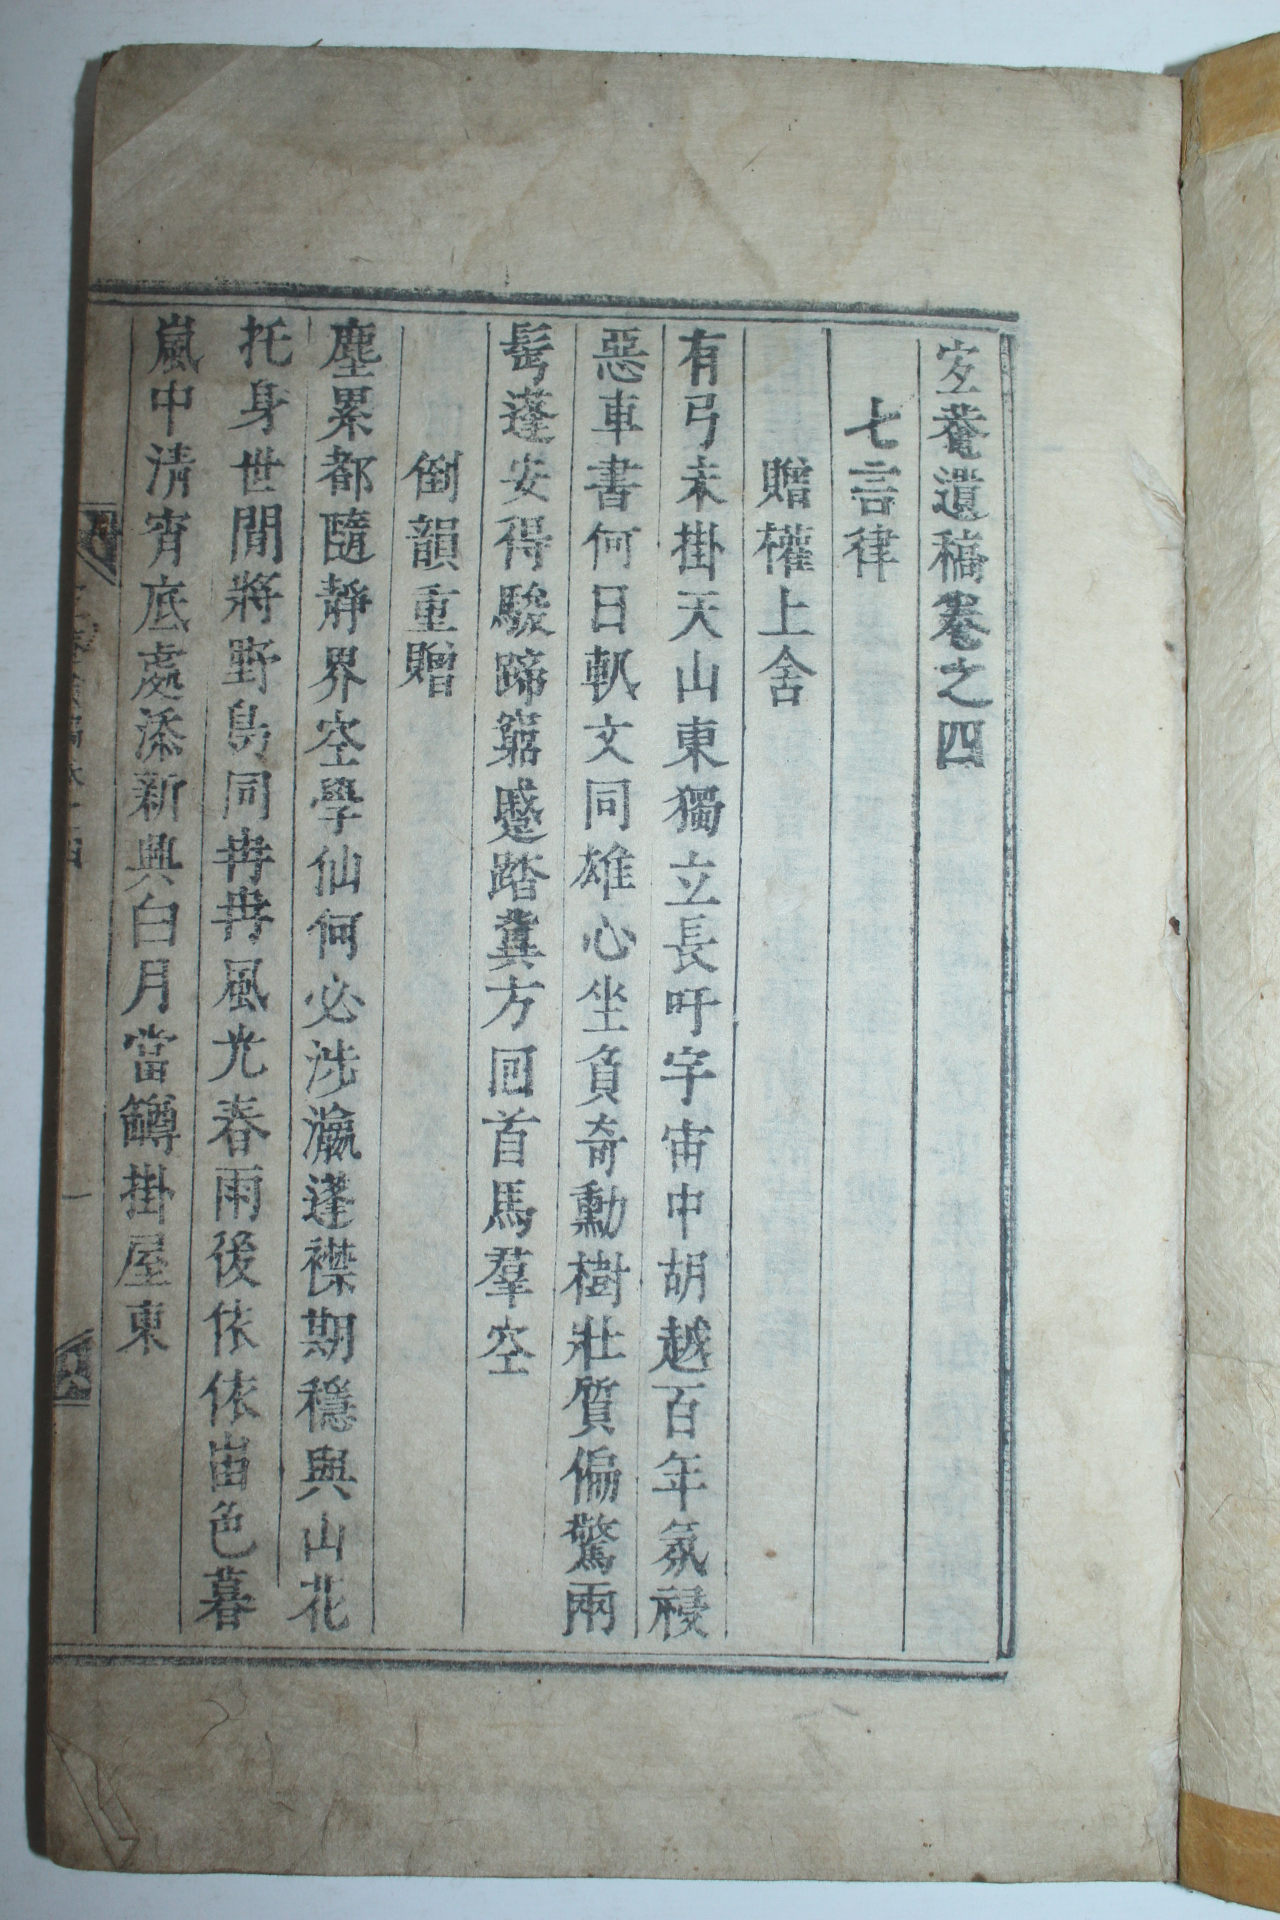 㝎菴遺稿卷之四
七言律
贈權上舍
有弓未掛天山東獨立長吁宇宙中胡越百年氛祲
惡車書何日軌文同雄心坐負奇勳樹壯質偏驚兩
髩蓬安得駿蹄窮蹙踏冀方回首馬羣空
倒韻重贈
塵累都隨靜界空學仙何必涉瀛蓬襟期穩與山花
托身世閒將野鳥同冉冉風光春雨後依依峀色暮
嵐中清宵底處添新興白月當罇掛屋東
一